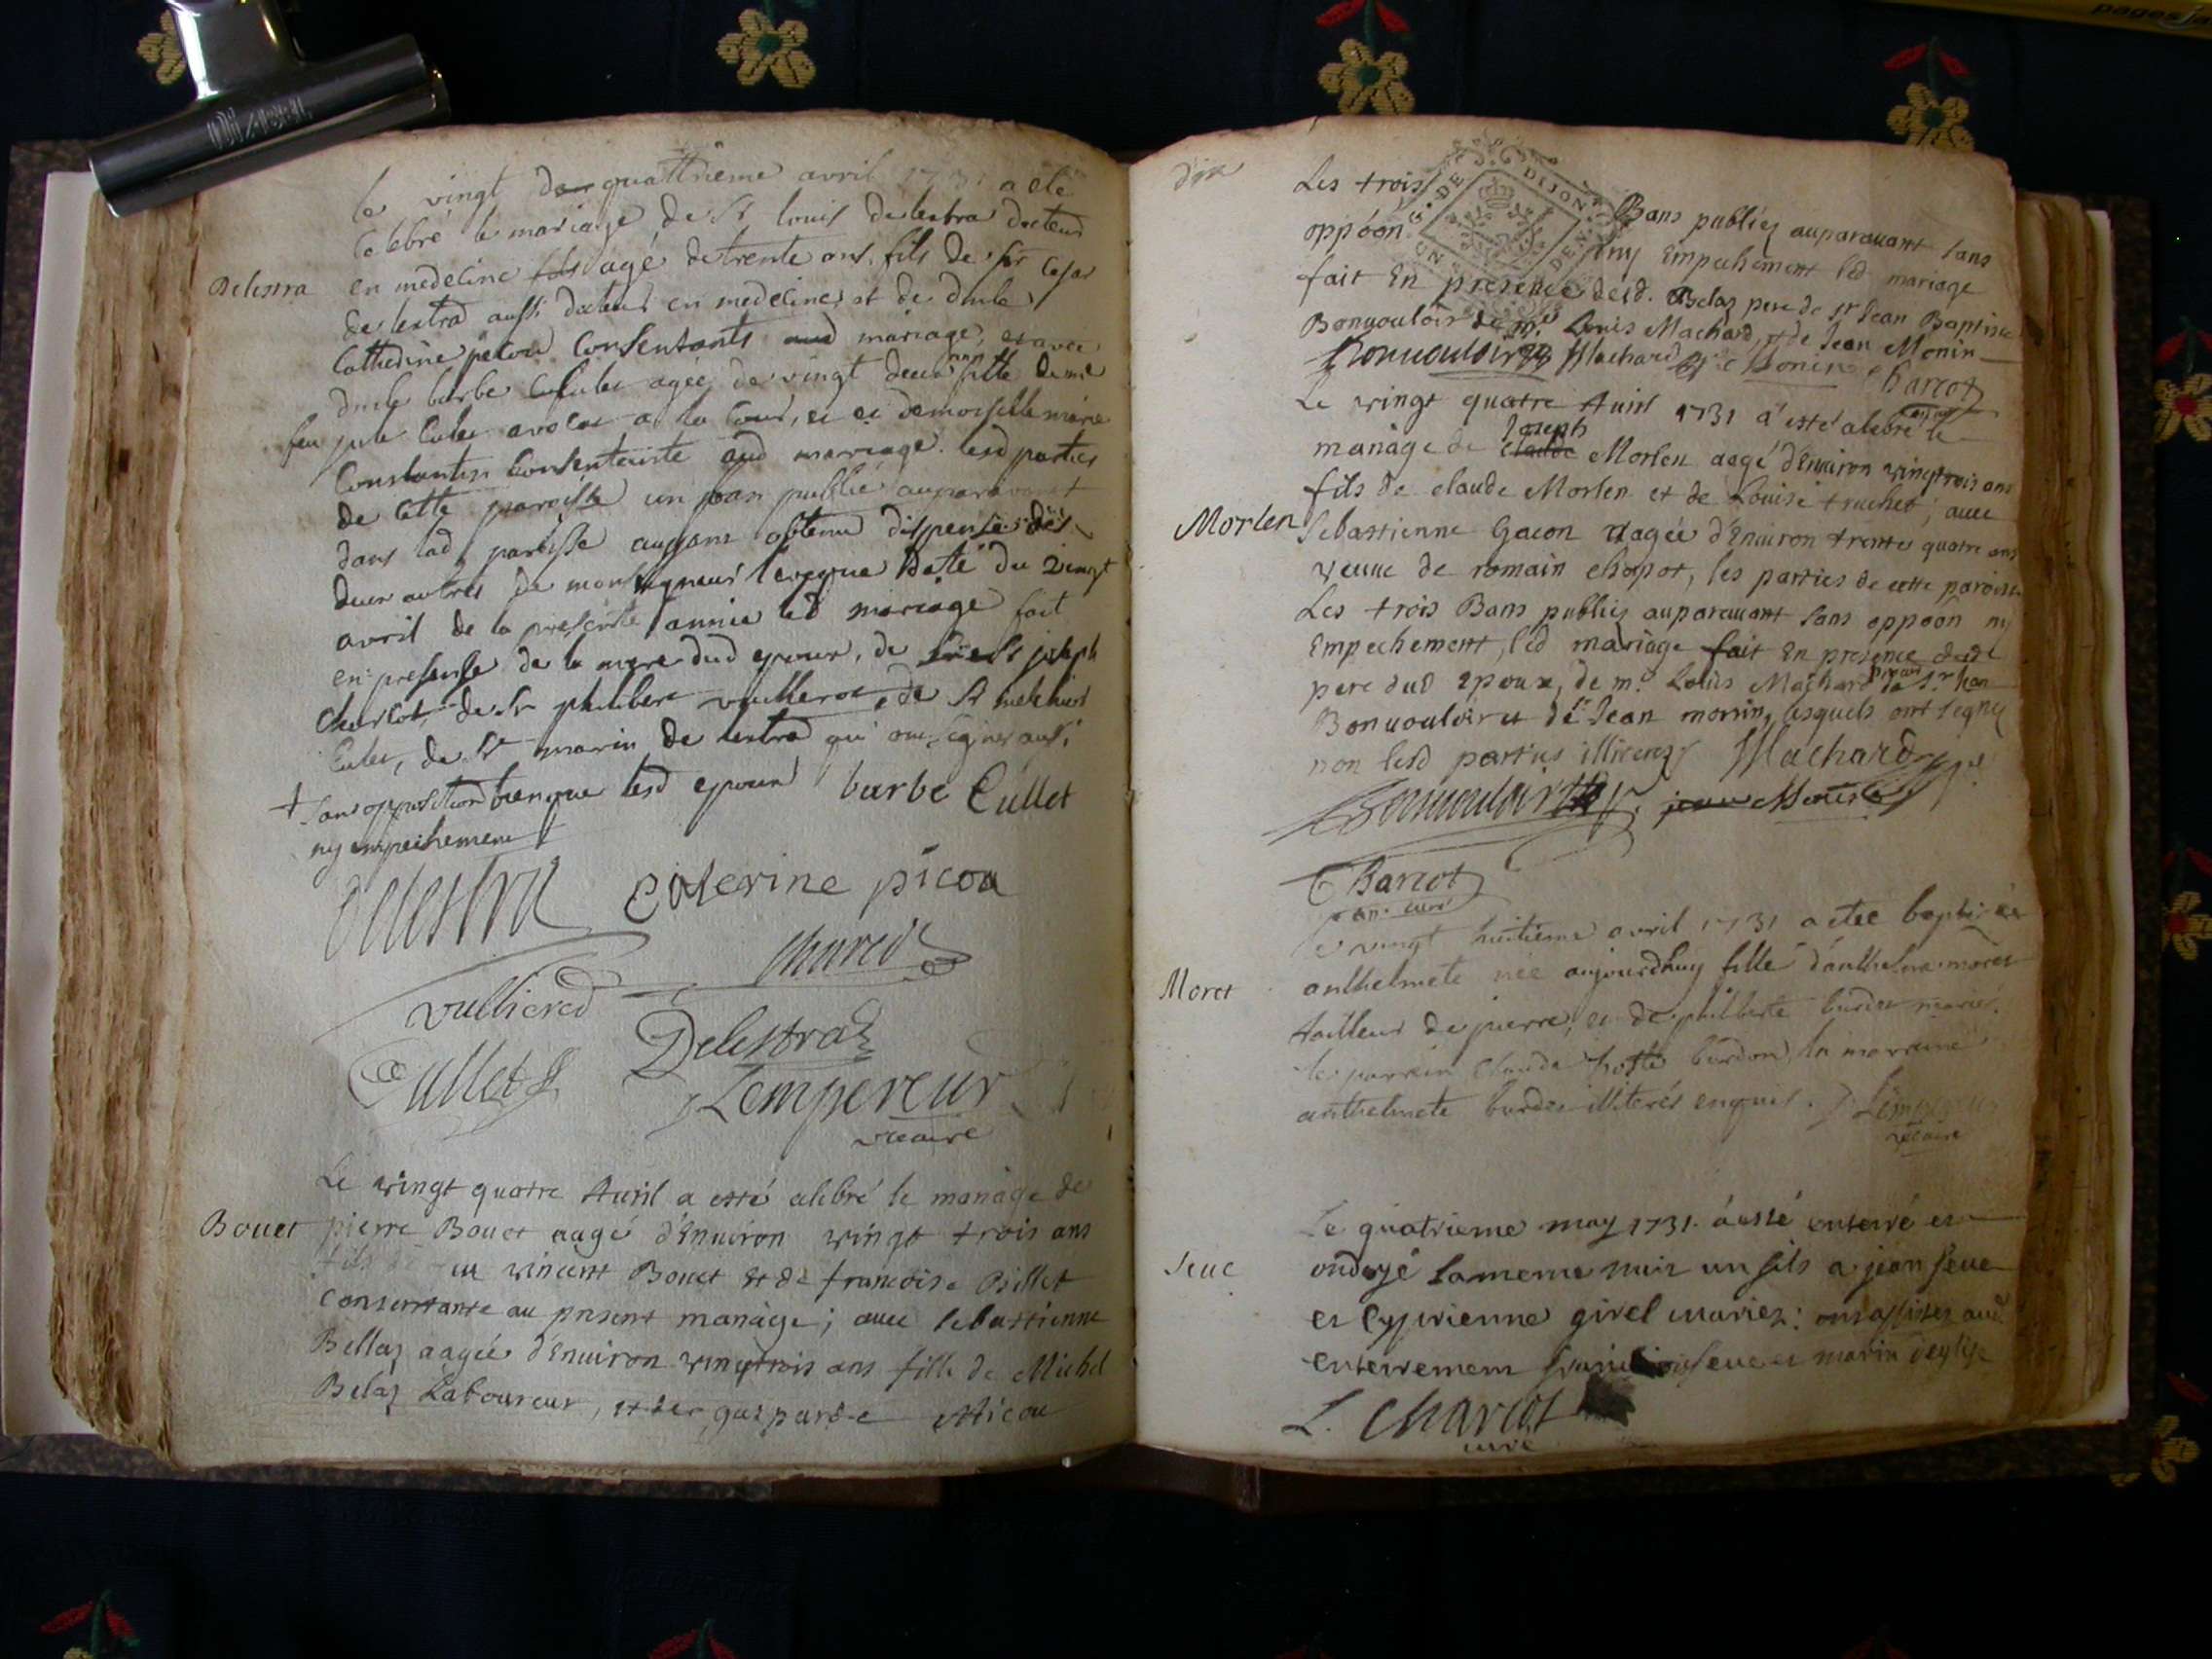 le vingt quattrieme avril 1731 a ete
celebré le mariage de Sr louis delestra docteur
Delestra
en medecine agé de trente ans, fils de sr Cesar
de lestra aussi docteur en medecine et de dmle
Catherine picou Consentants aud mariage, et avec
dmle barbe Cullet agée de vingt deux ans fille de mre
feu avocat a la Cour, et de demoiselle marie
Constantin Consentante aud mariage. lesd parties
de cette paroisse un ban publié auparavant
dans lad paroisse ayant obtenu dispense des
deux autres de monseigneur l'eveque daté du vingt
avril de la presente année led mariage fait
en presense de la mere dud epoux, de Sr joseph
Charcot, de Sr philibert de Sr melchior
Culet, de Sr marin de lestra qui ont signer aussi
+ sans opposition bien que lesd epoux barbe Cullet
ny empechement
Delestra Caterine picou
Charcot
Cullet Delestra
Lempereur
vicaire
Le vingt quatre Auril a esté celebré le mariage de
Bouet
pierre Bouet aagé d'Enuiron vingt trois ans
fils de feu vincent Bouet et de francoise Billet
Consentante au present mariage; auec Sebastienne
Bellaz aagée d'Enuiron vingttrois ans fille de Michel
Belaz Laboureur, et de gasparde Micou
dix
G. DE DIJON
Les trois Bans publiez auparauant sans
oppoon ny Empechement led mariage
fait En presence desd. Belaz pere de Sr Jean Baptiste
Bonuouloir de mre Louis Machard, et de Jean Monin
Bonuouloir Machard Monin Charcot
Le vingt quatre Auril 1731 a esté celebré le
mariage de Claude Joseph Morlen aagé d'Enuiron vingttrois ans
fils de claude Morlen et de Louise truchet; auec
Morlen
Sebastienne Gacon aagée d'Enuiron trente quatre ans
veuue de romain chapot, les parties de cette paroisse
Les trois Bans publiez auparauant sans oppoon ny
Empechement, led mariage fait En presence dud
pere dud Epoux, de mre Louis Machard de Sr Jean
Bonuouloir et de Jean monin, lesquels ont signez
non lesd parties illiterez Machard
Bonuouloir jean Monin
Charcot
curé
Le vingt huitieme avril 1731 a etee baptisée
anthelmete née aujourdhuy fille d'anthelme moret
Moret
tailleur de pierre, et de philiberte burdet mariés.
le parrein Claude burdon, la marreine
anthelmete burdet illiterés enquis. Lempereur
vicaire
Le quatrieme may 1731. a esté enterré et
Seue
ondoyé la meme nuit un fils a jean seue
et Cyprienne givel mariez: ont assistez aud
enterrement seue et marin d'eglise
L. Charcot
curé